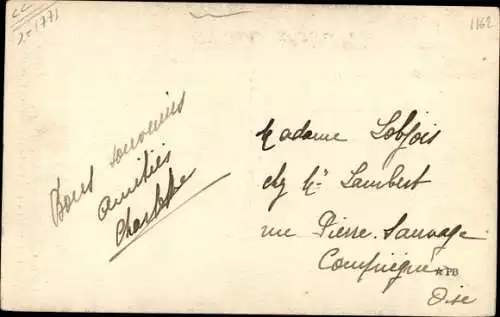 2-1771
1162
Bons souvenirs
amitiés
Charlotte
Madame Lobjois
chez Mr Lambert
rue Pierre. Sauvage
Compiègne
★PB
Oise